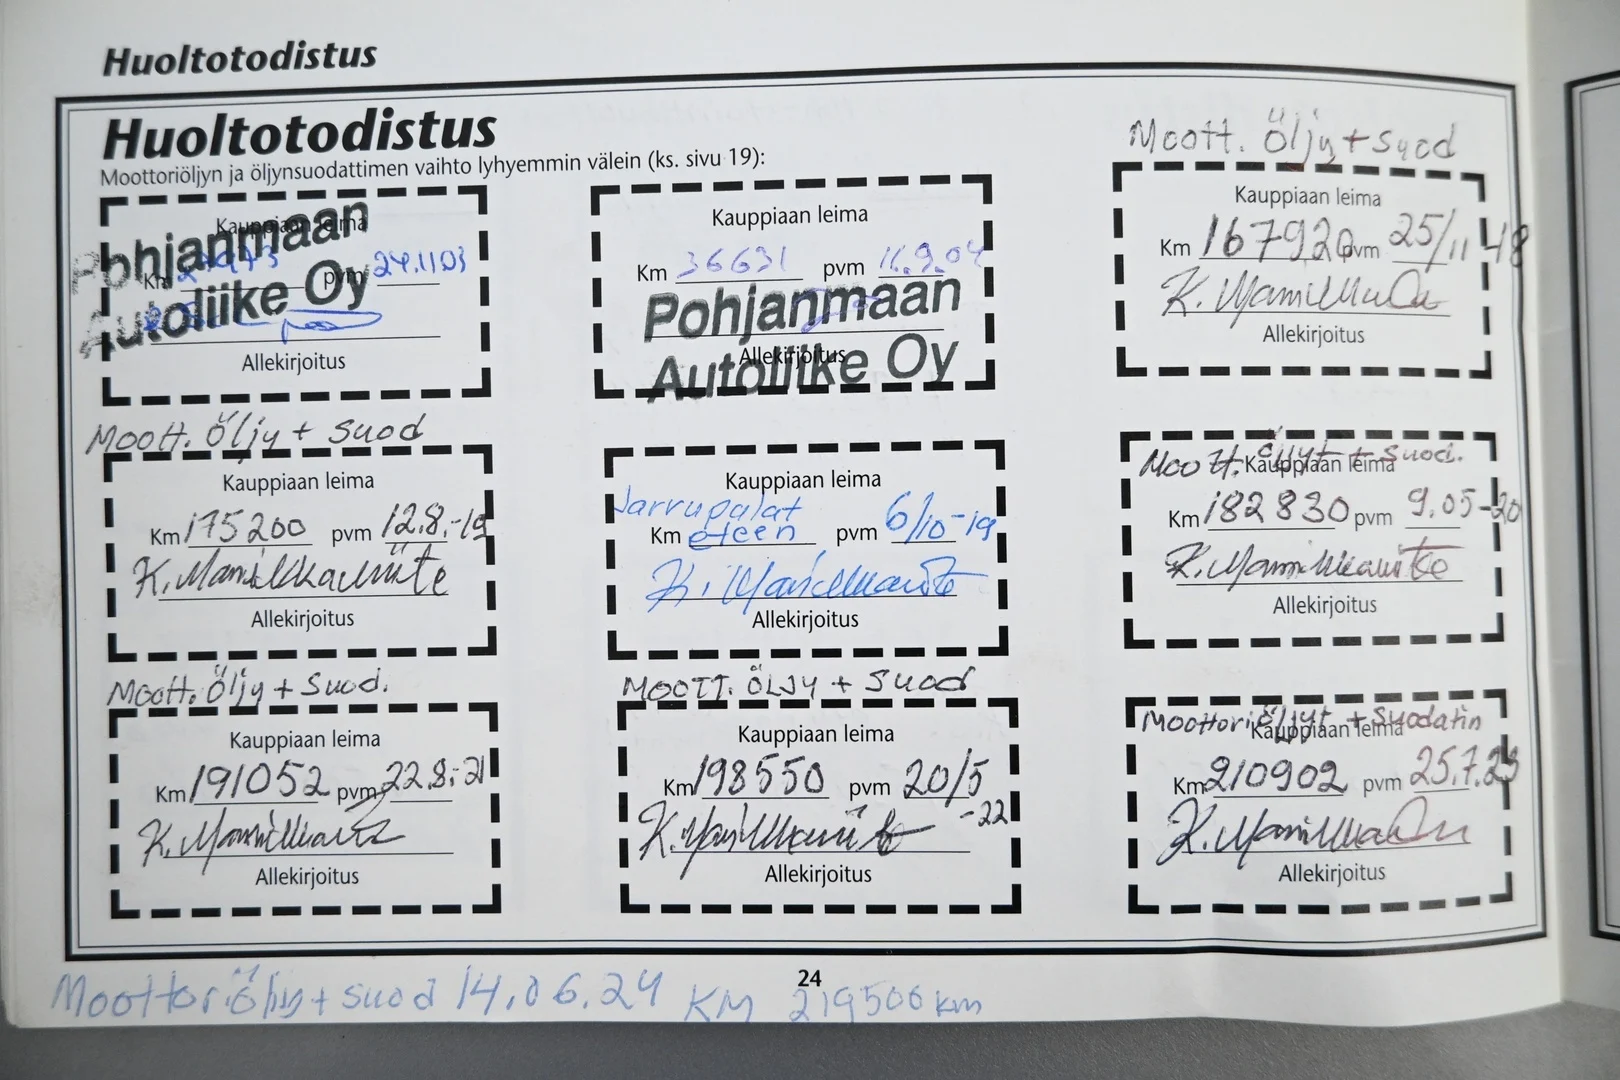 Huoltotodistus
Huoltotodistus
Moottoriöljyn ja öljynsuodattimen vaihto lyhyemmin välein (ks. sivu 19):
Kauppiaan leima
Km pvm 24.1103
Pohjanmaan
Autoliike Oy
Allekirjoitus
Kauppiaan leima
Km 36631 pvm 16.9.04
Pohjanmaan
Autoliike Oy
Allekirjoitus
Moott. öljy + suod
Kauppiaan leima
Km 167920 pvm 25/11-18
K.
Allekirjoitus
Moott. öljy + suod
Kauppiaan leima
Km 175200 pvm 12.8.-19
K.
Allekirjoitus
Kauppiaan leima
Jarrupalat
Km eteen pvm 6/10-19
K.
Allekirjoitus
Moott. öljyt + suod.
Kauppiaan leima
Km 182830 pvm 9.05-20
K.
Allekirjoitus
Moott. öljy + suod.
Kauppiaan leima
Km 191052 pvm 22.8.-21
K.
Allekirjoitus
MOOTT. ÖLJY + suod
Kauppiaan leima
Km 198550 pvm 20/5
-22
K.
Allekirjoitus
Moottoriöljyt + Suodatin
Kauppiaan leima
Km 210902 pvm 25.7.23
K.
Allekirjoitus
24
Moottoriöljy + suod 14.06.24 KM 219506 km